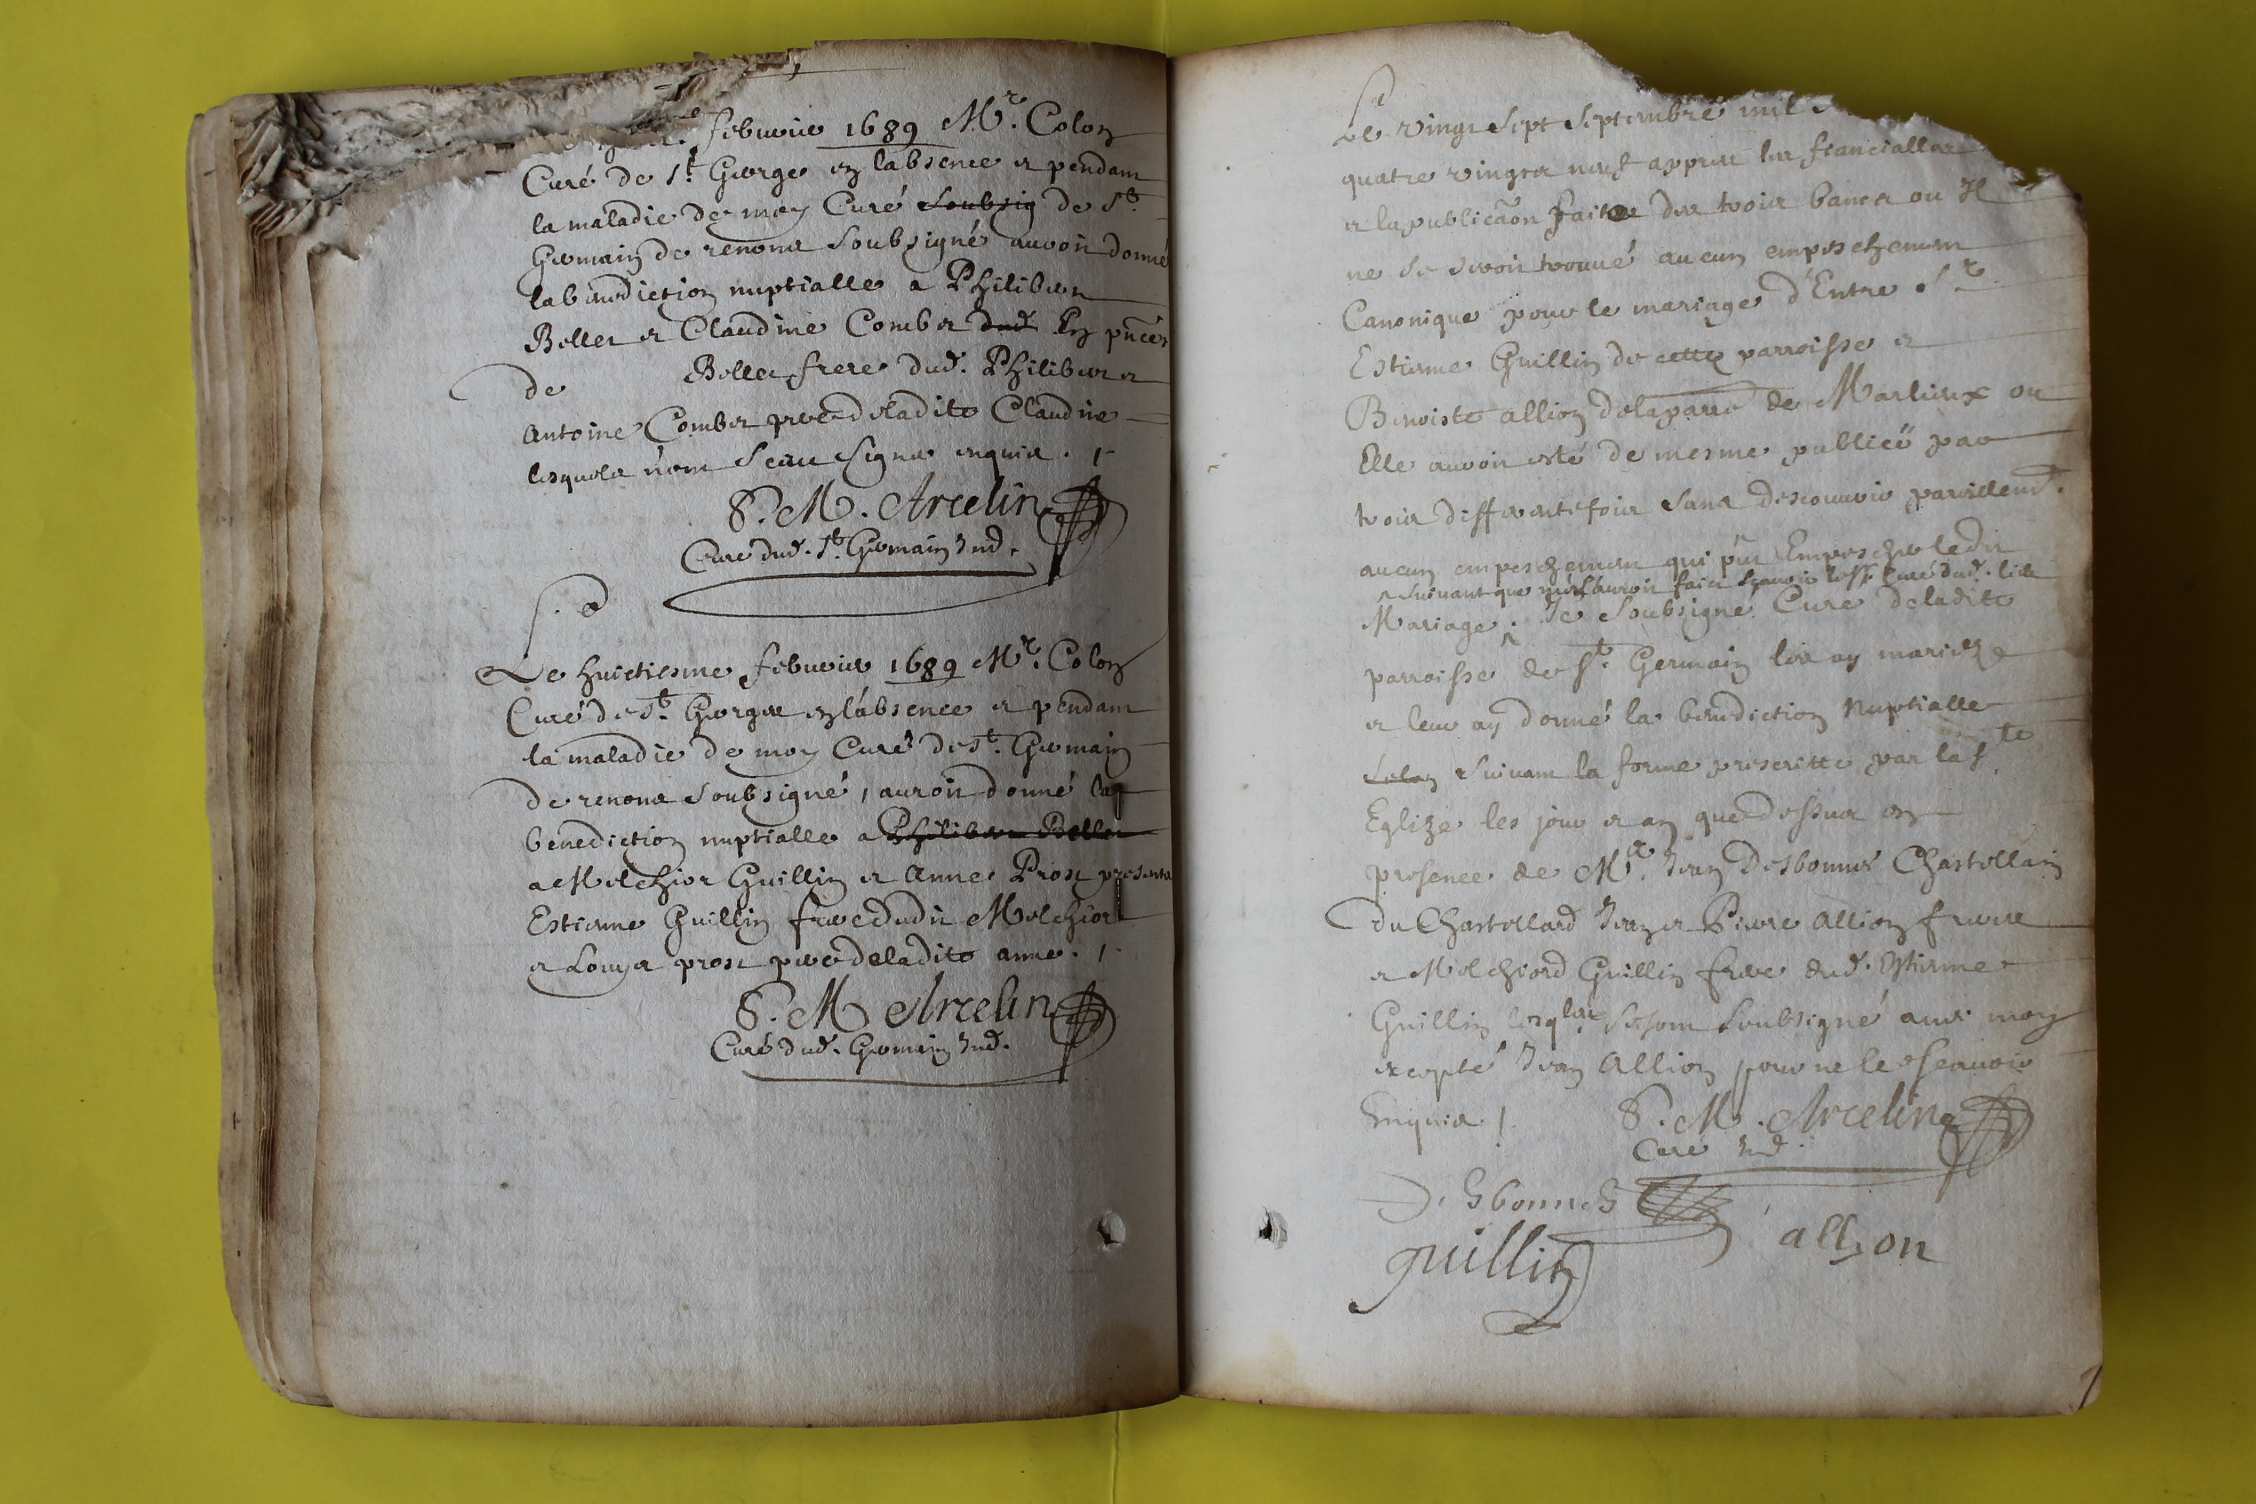 febvrier 1689 Mr. Colon
Curé de St. George en labsence et pendant
la maladie de moy Curé soubsig de St.
Germain de renons soubsigné auroit donné
la benediction nuptialle a Philibert
Bellet et Claudine Combet dud. En pnces
de Bellet frere dud. Philibert et
Antoine Combet pere deladite Claudine
lesquels nont sceu signer enquis .
P. M. Arcelin
Curé dud. St. Germain
Le huictiesme febvrier 1689 Mr. Colon
Curé de St. George en labsence et pendant
la maladie de moy Curé de St. Germain
de renons soubsigné, auroit donné la
benediction nuptialle a Philibert Bellet
a Melchior Guillin et Anne Prost presents
Estienne Guillin frere dudit Melchior
et Louys prost pere deladite anne .
P. M Arcelin
Curé dud. Germain
Le vingt sept septembre mil
quatre vingts neuf appres les fiancialles
et la publicãon faitte des trois bancs ou Il
ne se seroit trouvé aucun empeschement
Canonique pour le mariage d'Entre Sr.
Estienne Guillin de cette parroisse et
Benoiste allion delaparre de Marlieux ou
Elle auroit esté de mesme publiée par
trois differentefois sans descouvrir pareillemt.
aucun empeschement qui put Empescher ledit
suivant que nous auroit faict scavoir Curé dud. lieu
Mariage ; Je soubsigné Curé deladite
parroisse de St. Germain les ay mariez
et leur ay donné la benediction Nuptialle
selon suivant la forme prescritte par la Ste
Eglize les jour et an que dessus en
presence de Mr. Jean Desbonnes Chastellain
du Chastellard Jean et Pierre Allion freres
et Melchiord Guillin frere dud. Estienne
Guillin lesqls se sont soubsigné avec moy
excepté Jean Allion pour ne le scavoir
Enquis .
P. M. Arcelin
Curé
Desbonnes
guillin
allion